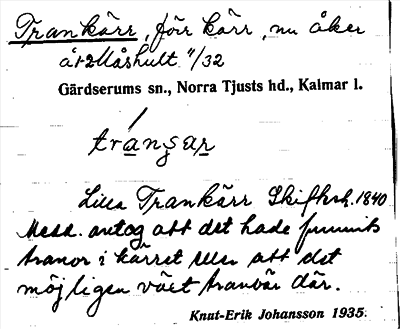 Trankärr, förr kärr, nu åker
åt Måshult. 11/32
Gärdserums sn., Norra Tjusts hd., Kalmar l.
Lilla Trankärr Skifksk. 1840
Medd. antog att det hade funnits
tranor i kärret eller att det
möjligen växt tranbär där.
Knut-Erik Johansson 1935.